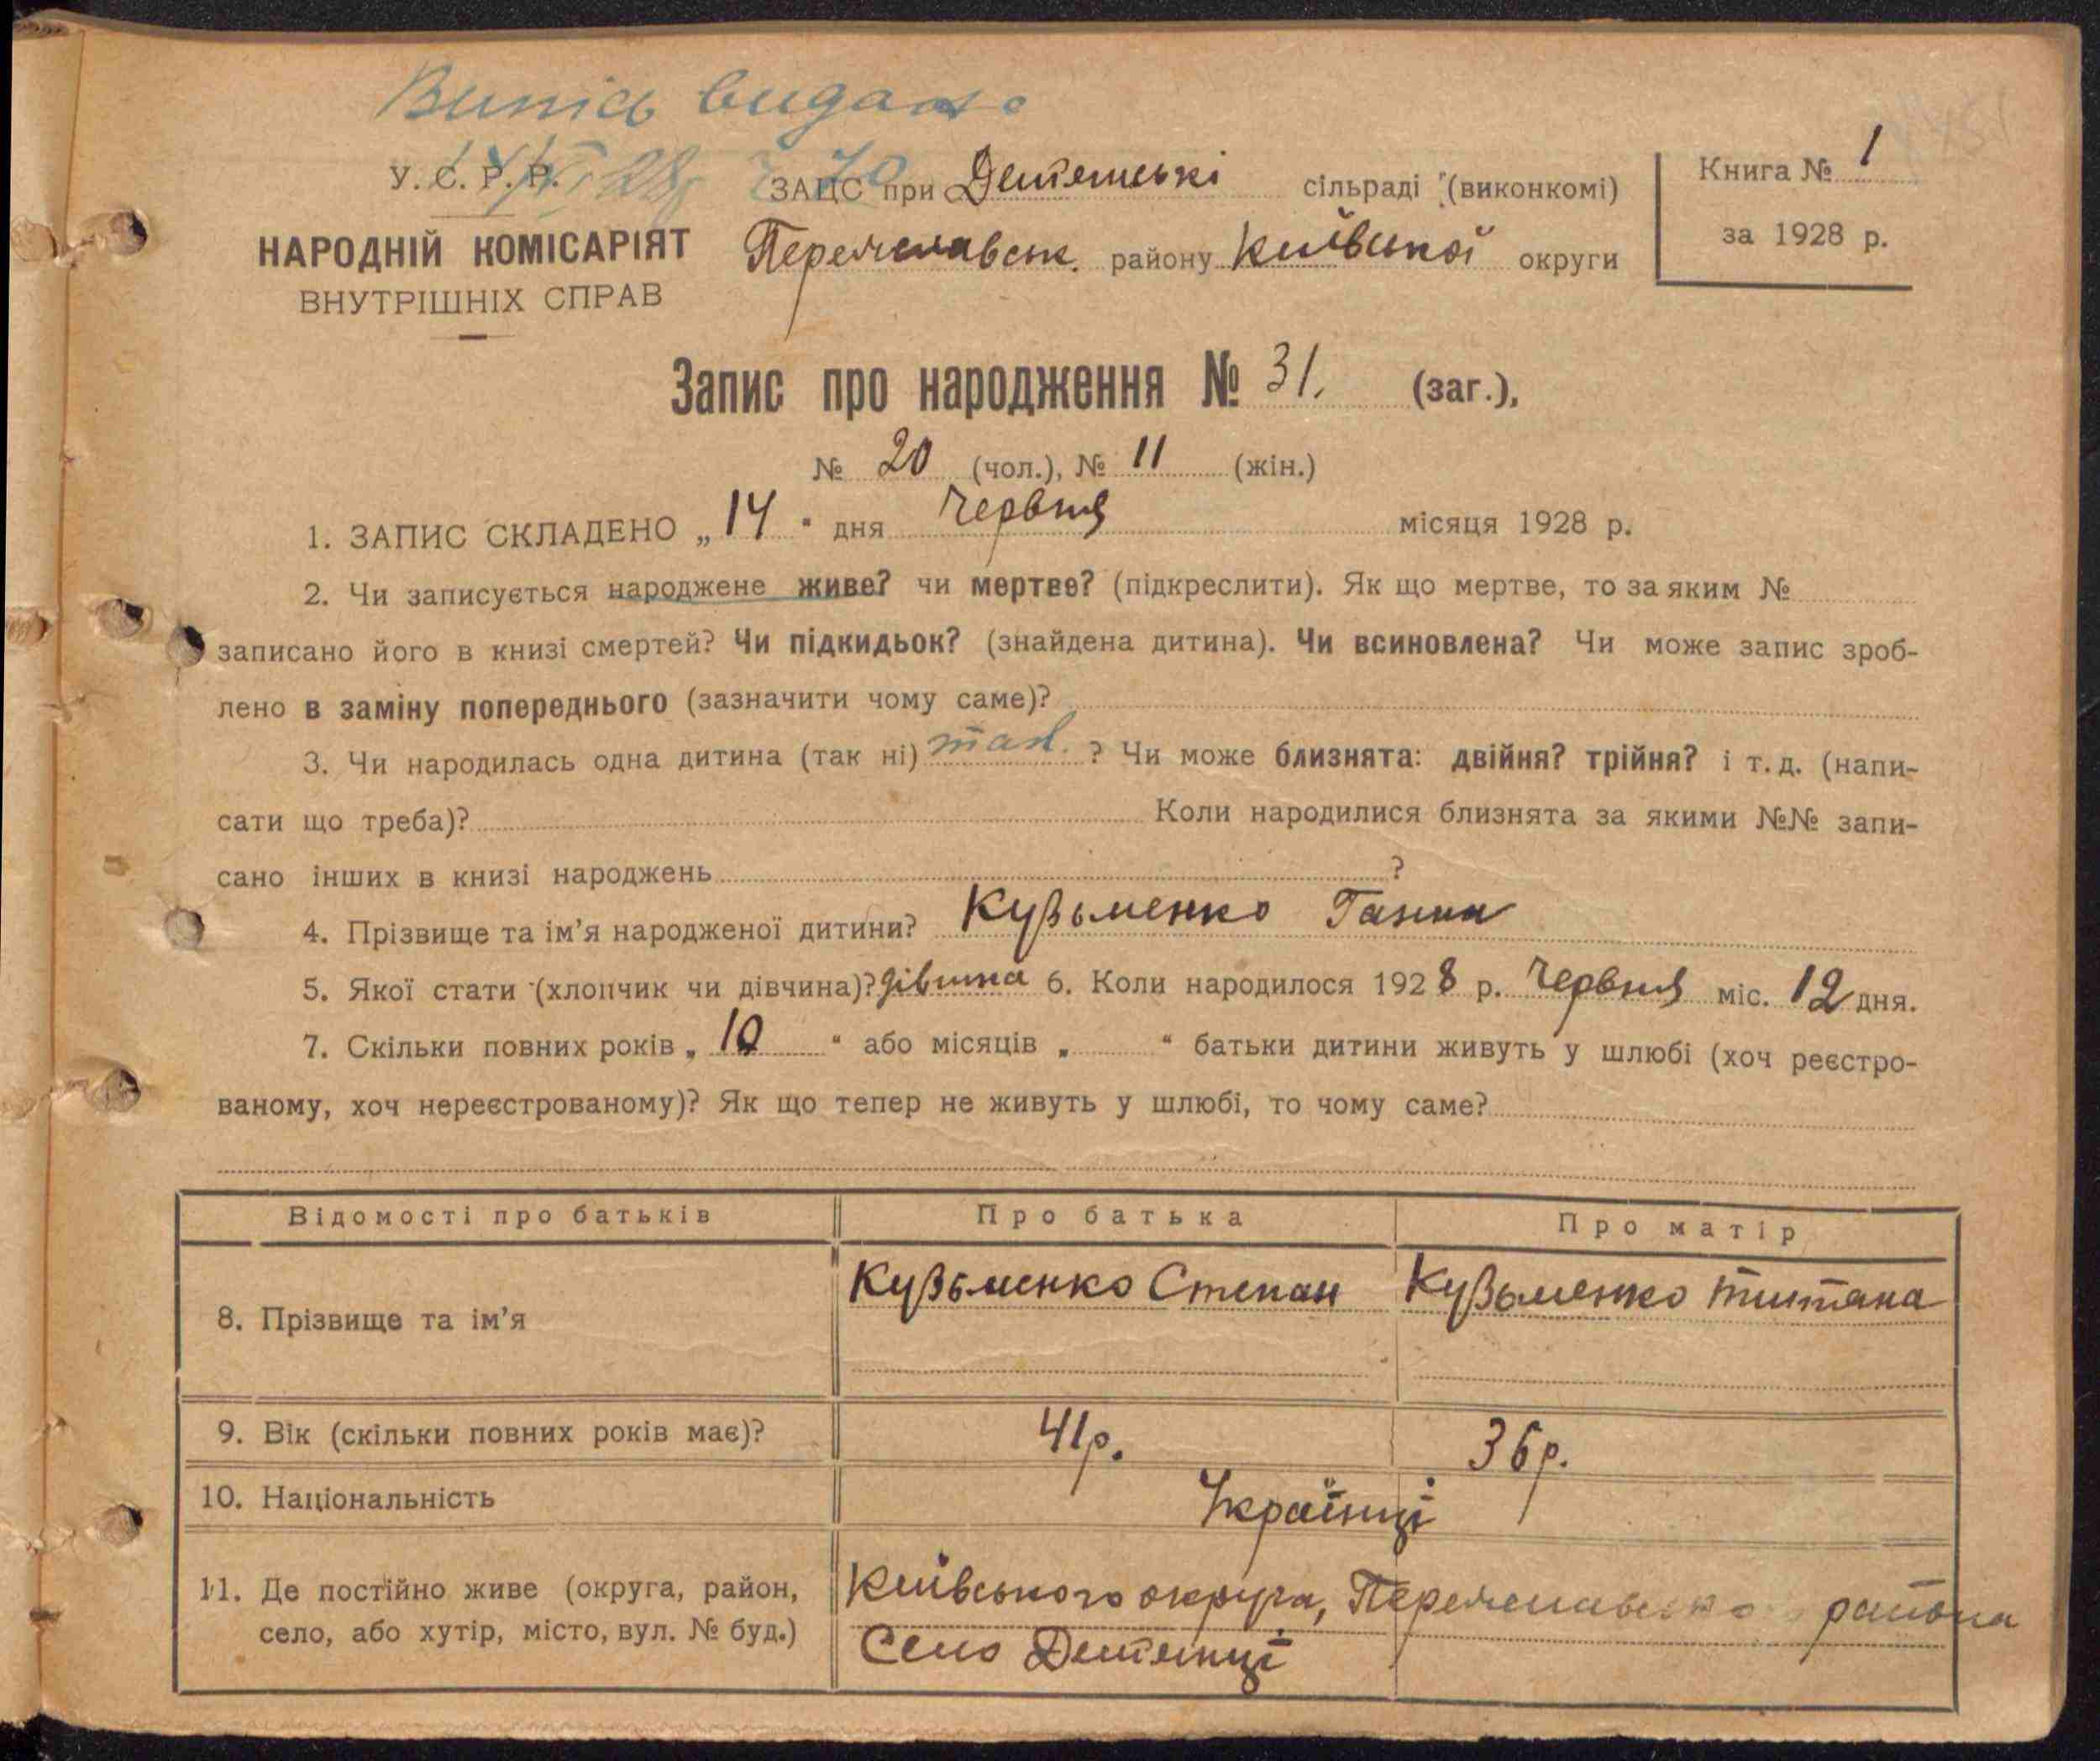 Випись видано
У. С. Р. Р.
ЗАЦС при сільраді (виконкомі)
Книга № 1
за 1928 р.
НАРОДНІЙ КОМІСАРІЯТ
ВНУТРІШНІХ СПРАВ
району Київської округи
Запис про народження № 31. (заг.),
№ 20 (чол.), № 11 (жін.)
1. ЗАПИС СКЛАДЕНО „ 14 " дня Червня місяця 1928 р.
2. Чи записується народжене живе? чи мертве? (підкреслити). Як що мертве, то за яким №
записано його в книзі смертей? Чи підкидьок? (знайдена дитина). Чи всиновлена? Чи може запис зроб-
лено в заміну попереднього (зазначити чому саме)?
3. Чи народилась одна дитина (так ні) так. ? Чи може близнята: двійня? трійня? і т. д. (напи-
сати що треба)? Коли народилися близнята за якими №№ запи-
сано інших в книзі народжень ?
4. Прізвище та ім'я народженої дитини? Кузьменко Ганна
5. Якої стати (хлопчик чи дівчина)? 6. Коли народилося 1928 р. Червня міс. 12 дня.
7. Скільки повних років „ 10 " або місяців „ " батьки дитини живуть у шлюбі (хоч реєстро-
ваному, хоч нереєстрованому)? Як що тепер не живуть у шлюбі, то чому саме?
Відомості про батьків Про батька Про матір
8. Прізвище та ім'я Кузьменко Степан Кузьменко Титяна
9. Вік (скільки повних років має)? 41р. 36р.
10. Національність Українці
11. Де постійно живе (округа, район,
село, або хутір, місто, вул. № буд.)
Київського округа, района
Село